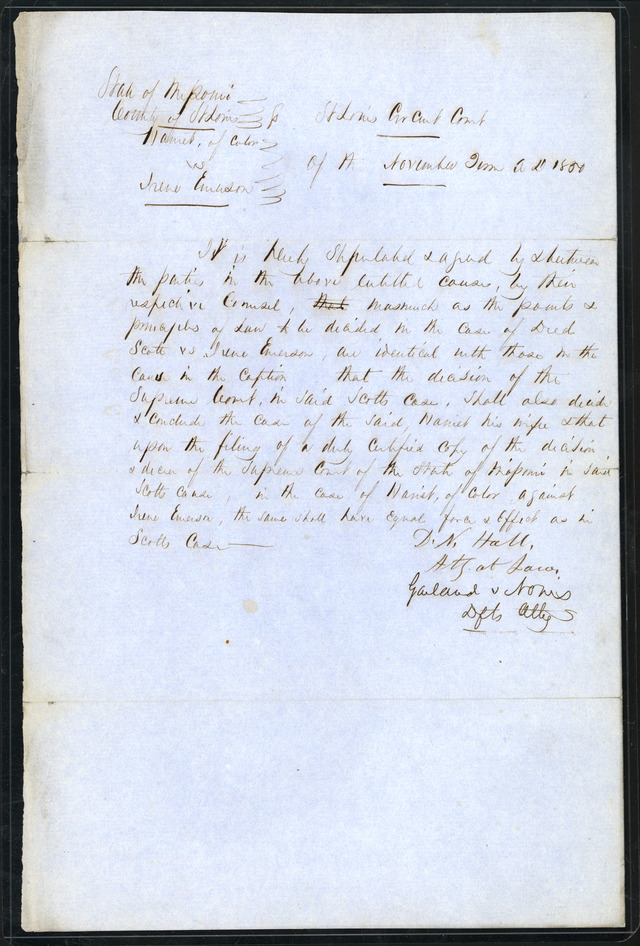 State of Missouri
County of St Louis } ss St Louis Circuit Court
Harriet, of Color
vs of the November Term A D 1850
Irene Emerson
It is hereby Stipulated & agreed by & between
the parties in the above Entitled cause, by their
respective Counsel, that inasmuch as the points &
principles of Law to be decided in the case of Dred
Scott vs Irene Emerson, are identical with those in the
cause in the Caption that the decision of the
Supreme Court, in Said Scotts case, Shall also decide
& conclude the case of the said, Harriet his wife & that
upon the filing of a duly Certified copy of the decision
& decree of the Supreme Court of the State of Missouri in said
Scotts cause, in the case of Harriet, of Color against
Irene Emerson, the same shall have Equal force & Effect as in
Scotts Case
D. N. Hall,
Atty at Law.
Garland & Norris
Defts Attys